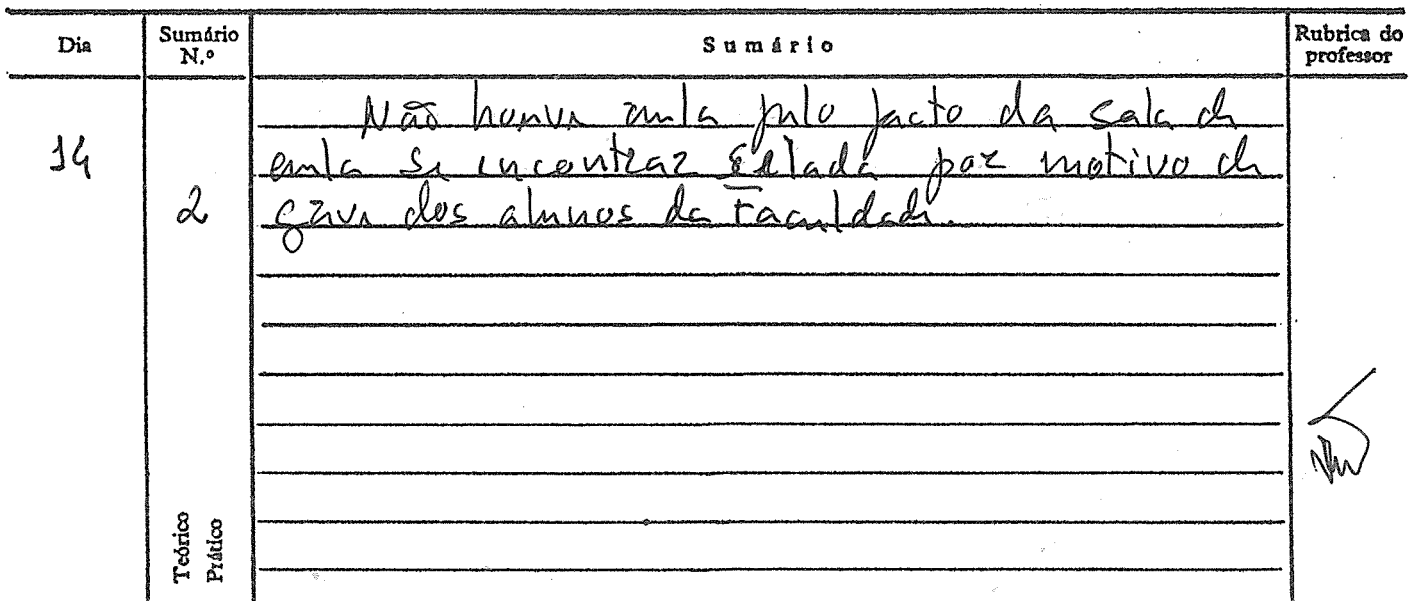 Dia Sumário N.º Sumário Rubrica do professor
14 2 Não houve aula pelo facto da sala de
aula se encontrar selada por motivo de
greve dos alunos da Faculdade.
Teórico
Prático